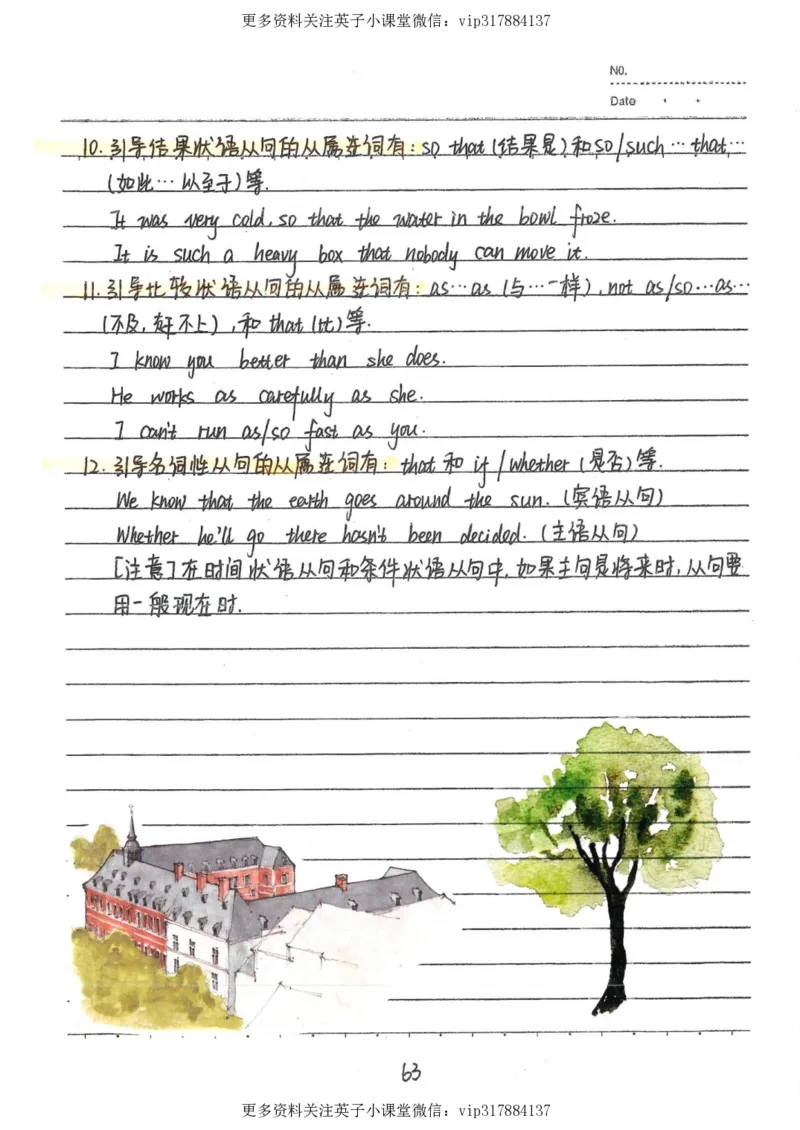 更多资料关注英子小课堂微信：vip317884137
NO.
Date
10. 引导结果状语从句的从属连词有：so that (结果是) 和 so/such…that…
(如此…以至于) 等.
It was very cold, so that the water in the bowl froze.
It is such a heavy box that nobody can move it.
11. 引导比较状语从句的从属连词有：as…as (与…一样), not as/so…as…
(不及, 赶不上), 和 that (比) 等.
I know you better than she does.
He works as carefully as she.
I can't run as/so fast as you.
12. 引导名词性从句的从属连词有：that 和 if/whether (是否) 等.
We know that the earth goes around the sun. (宾语从句)
Whether he'll go there hasn't been decided. (主语从句)
[注意] 在时间状语从句和条件状语从句中, 如果主句是将来时, 从句要
用一般现在时.
63
更多资料关注英子小课堂微信：vip317884137